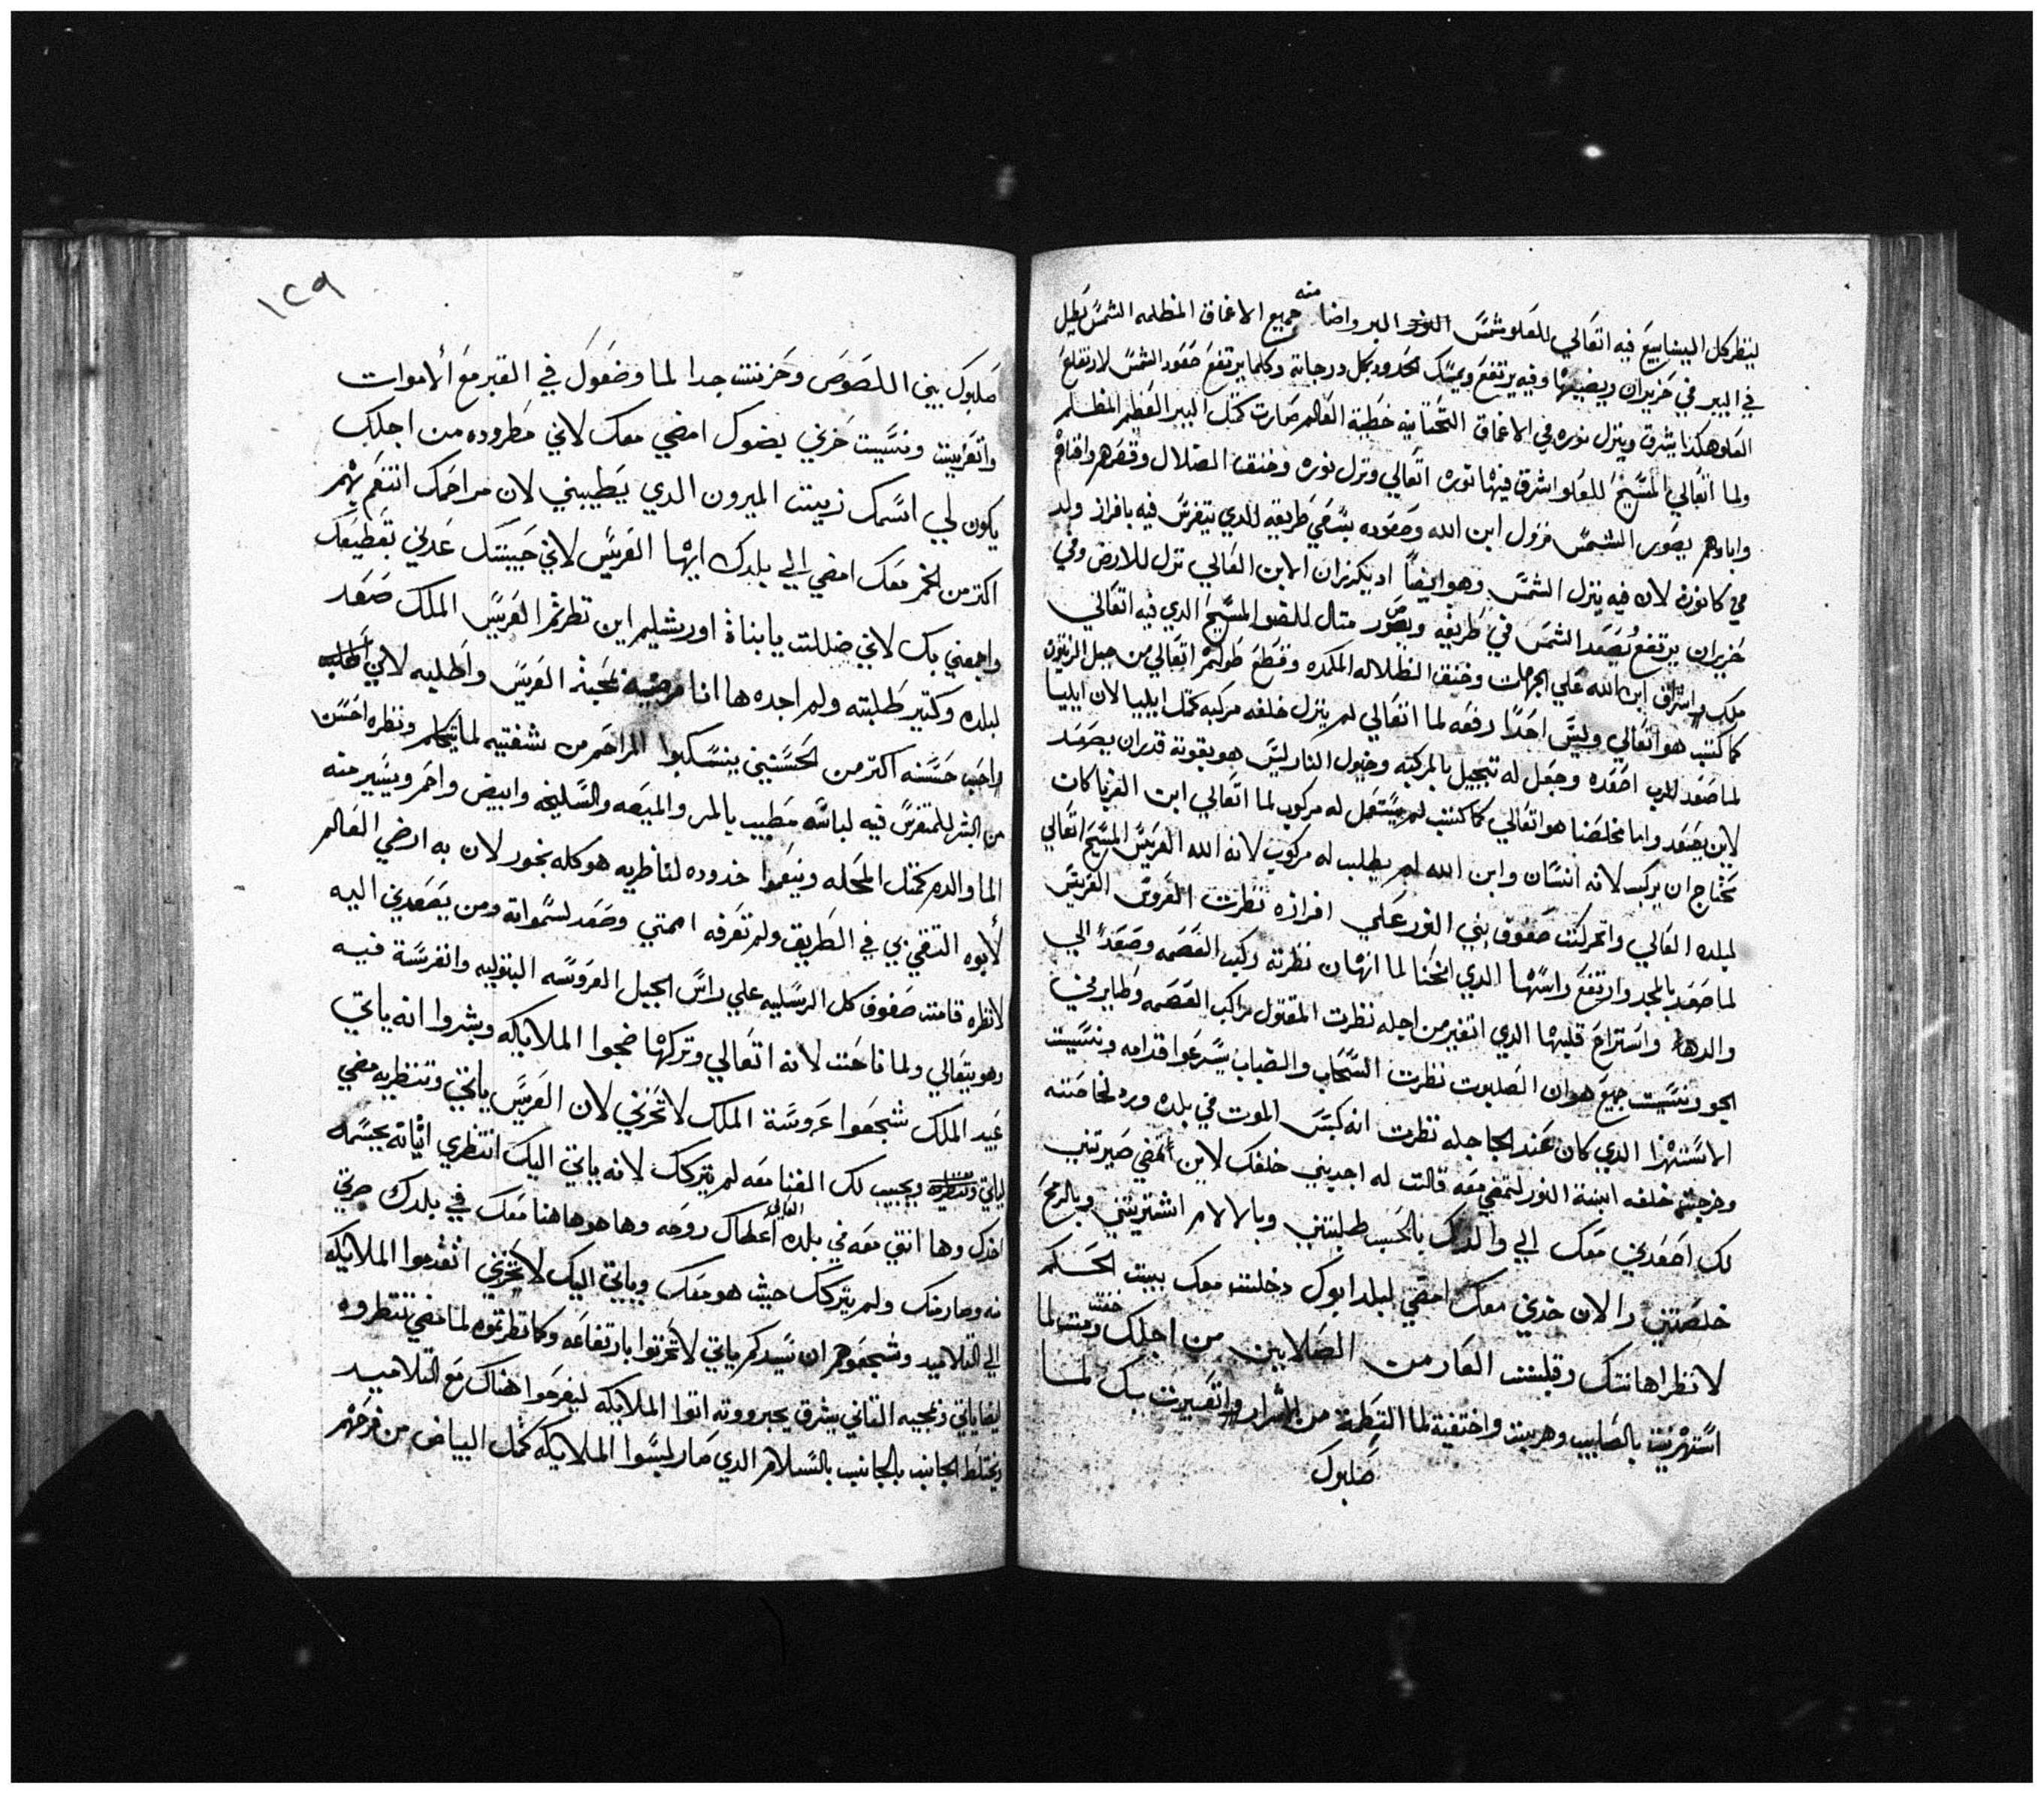 لينظر كل الينابيع فيه اتعالي للعلو شمس النور البر واضا منه جميع الاعماق المظلمه الشمس تطل
في البير في حزيران ويضيها وفيه يرتفع ويمسك الحدود بكل درجاته وكلما يرتفع صعود الشمس لارتفاع
العلو هكذا يشرق وينزل نوره في الاعماق التحتانيه خطية العالم صارت كمثل البير العظيم المظلم
ولما اتعالي المسيح للعلو اشرق فيها نوره اتعالي ونزل نوره وخنق الضلال وقهرهم وافناهم
واباوهم بصور الشمس نزول ابن الله وصعوده بسعي طريقه للدي يتفرس فيه بافراز ولد
في كانون لان فيه ينزل الشمس وهو ايضاً الابن العالي نزل للارض وفي
حزيران يرتفع يصعد الشمس في طريقه ويصور متال للضو المسيح الدي فيه اتعالي
ابن الله علي الجهات وخنق الظلاله الملكده وقطع طولهم اتعالي من جبل الزيتون
كما كتب هو اتعالي وليس احداً رفعه لما اتعالي لم ينزل خلفه مركبه كمتل ايليا لان ايليا
لما صعد الرب اصعده وجعل له تبجيل بالمركبه وخيول النار ليس هو بقوته قدران يصعد
لاين يصعد واما مخلصنا هو اتعالي كما كتب لم يستعمل له مركوب لما اتعالي ابن كان
محتاج ان يركب لانه انسان وابن الله لم يطلب له مركوب لانه الله العريس المسيح اتعالي
لبلده العالي واتحركت صفوف بني النور علي افرازه نظرت العروس العريس
لما صعد بالمجد وارتفع راسها الدي انحنا لما انهان نظرته ركب الغمامه وصعد الي
والدها واستراح قلبها الدي اتغير من اجله نظرت المقتول راكب وطاير في
الجو ونسيت جميع هوان الصلبوت نظرت السحاب والضباب يسرعوا قدامه ونسيت
الاستهزا الدي كان عند الجاجله نظرت انه كبس الموت في بلده
وخرجت خلفه ابنة النور لتمضي معه قالت له اجدبني خلفك لاين تمضي صيرتني
لك اصعدني معك الي والدك بالحب طلبتني وبالالام اشتريتني وبالرمح
خلصتني والان خدني معك امضي لبلد ابوك دخلت معك ببيت الحكم
لانظر اهانتك وقبلت العار من الصلابين من اجلك خفت ومت لما
استهزيت بالصليب وهربت واختفية لما من الاشرار واتعيرت بك لما
صلبوك

١٢٩
صلبوك بيني اللصوص وحزنت جدا لما وضعوك في القبر مع الاموات
واتعزيت ونسيت حزني بضوك امضي معك لاني مطروده من اجلك
يكون لي اسمك زيت الميرون الدي يطيبني لان مراحمك انتنعم بهم
اكتر من الخمر معك امضي الي بلدك ايها العريس لاني حبيتك عدني بقطيعك
واجمعني بك لاني ضللت يا بناة اورشليم اين نظرتم العريس الملك صعد
لبلده وكتير طلبته ولم اجده ها انا مرضيه بمحبة العريس واطلبه لاني
واحب حسنه اكتر من الحسنين ينسكبوا المراحم من شفتيه لما يتكلم ونظره احسن
من البشر للمتفرس فيه لباسه مطيب بالمر والميعه والسليخه وابيض واحمر ويسير منه
الما والدم كمتل المحله وينعموا خدوده لناظريه هو كله بخور لان به ارضي العالم
لابوه التقي بي في الطريق ولم تعرفه امتي وصعد لسمواته ومن يصعدني اليه
لانظره قامت صفوف كل الرسليه علي راس الجبل العروسه البتوليه واتفرسة فيه
وهو يتعالي ولما ناحت لانه اتعالي وتركها ضجوا الملايكه وبشروا انه ياتي
عبيد الملك شجعوا عروسة الملك لا تحزني لان العريس ياتي وتنظريه مضي
لياتي ويجيب لك الغنا معه لم يتركك لانه ياتي اليك انتظري اتيانه بجسمك
اخدك وها انتي معه في بلده العالي اعطاك روحه وها هو هاهنا معك في بلدك
منه وصار منك ولم يتركك حيت هو معك وياتي اليك لا تحزني اتقدموا الملايكه
الي التلاميد وشجعوهم ان سيدكم ياتي لا تحزنوا بارتفاعه وكما نظرتوه لما مضي تنتظروه
لما ياتي ومجيه التاني يشرق بجبروته اتوا الملايكه ليفرحوا هناك مع التلاميد
ويختلط الجانب بالجانب بالسلام الدي صار لبسوا الملايكه كمتل البياض من فرحهم